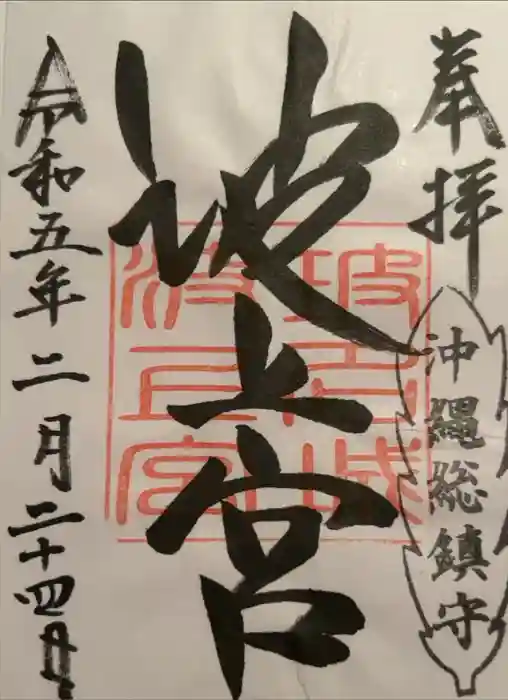 奉拝
沖縄総鎮守
波上宮
波上宮
令和五年二月二十四日